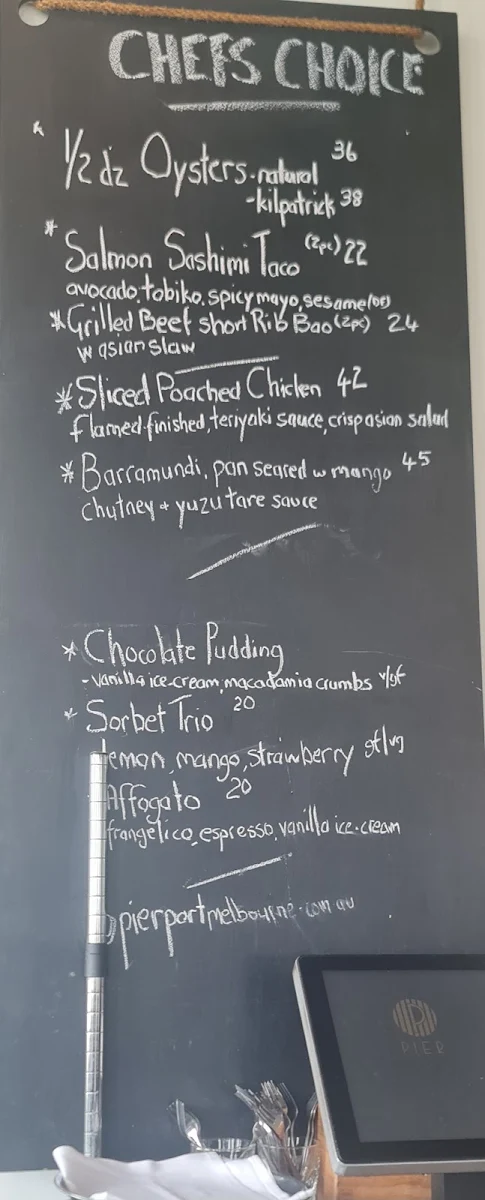 CHEFS CHOICE
* 1/2 dz Oysters - natural 36
- kilpatrick 38
* Salmon Sashimi Taco (2pc) 22
avocado, tobiko, spicy mayo, sesame (DF)
* Grilled Beef short Rib Bao (2pc) 24
w asian slaw
* Sliced Poached Chicken 42
flamed-finished, teriyaki sauce, crisp asian salad
* Barramundi, pan seared w mango 45
chutney + yuzu tare sauce
* Chocolate Pudding
- vanilla ice-cream, macadamia crumbs v/gf
* Sorbet Trio 20
lemon, mango, strawberry gf/vg
Affogato 20
frangelico, espresso, vanilla ice-cream
pierportmelbourne.com.au
PIER